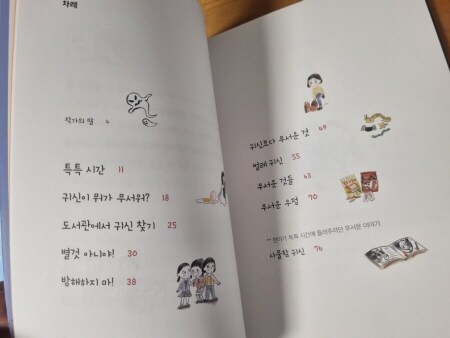 차례
작가의 말 4
톡톡 시간 11
귀신이 뭐가 무서워? 18
도서관에서 귀신 찾기 25
별것 아니야! 30
방해하지 마! 38
귀신보다 무서운 것 49
벌레 귀신 55
무서운 것들 63
무서운 우정 70
톡톡 시간에 들려주려던 무서운 이야기
사물함 귀신 76